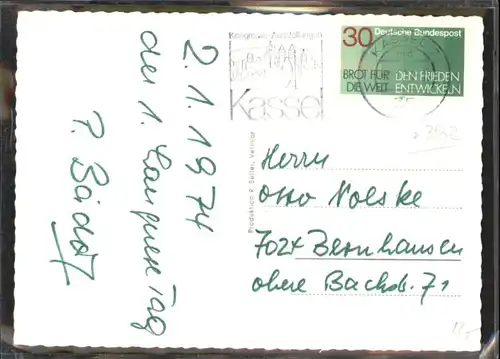 2.1.1974
der 1.
Tag
P.
Kongresse · Ausstellungen
Kassel
30 Deutsche Bundespost
BROT FÜR
DIE WELT
DEN FRIEDEN
ENTWICKELN
Produktion z Seiler, Vellmar
Herrn
Otto Nolske
7024 Bernhausen
obere Bachstr. 71